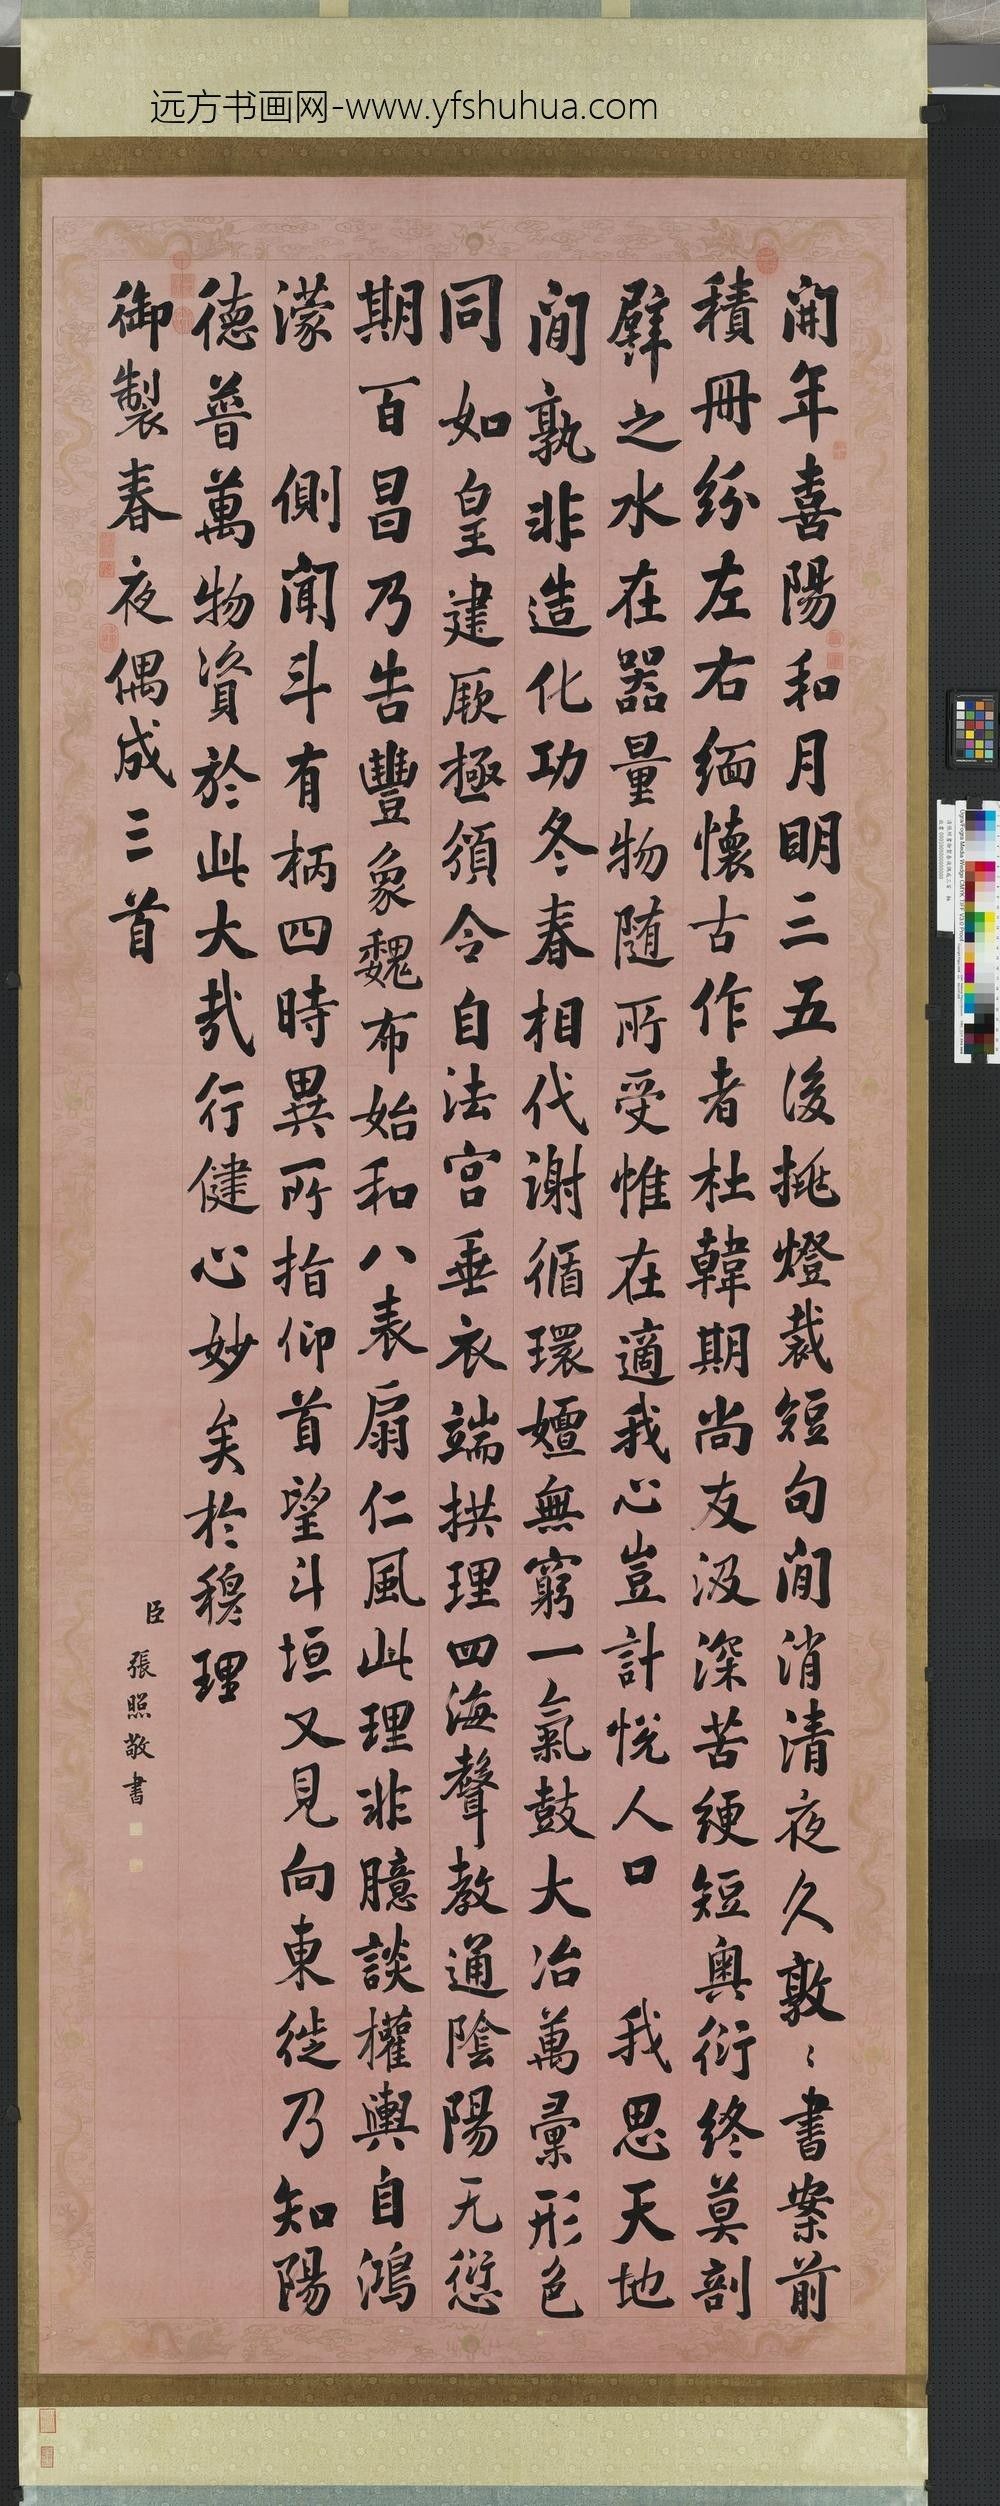 远方书画网-www.yfshuhua.com
開年喜陽和月明三五後挑燈裁短句閒消清夜久敦〻書案前
積冊紛左右緬懷古作者杜韓期尚友汲深苦綆短奥衍終莫剖
譬之水在器量物随所受惟在適我心豈計悅人口 我思天地
間孰非造化功冬春相代謝循環嬗無窮一氣鼓大冶萬彙形色
同如皇建厥極須令自法宫垂衣端拱理四海聲教通陰陽无愆
期百昌乃告豐象魏布始和八表扇仁風此理非臆談權輿自鴻
濛 側聞斗有柄四時異所指仰首望斗垣又見向東徙乃知陽
德普萬物資於此大哉行健心妙矣於穆理
御製春夜偶成三首
臣張照敬書